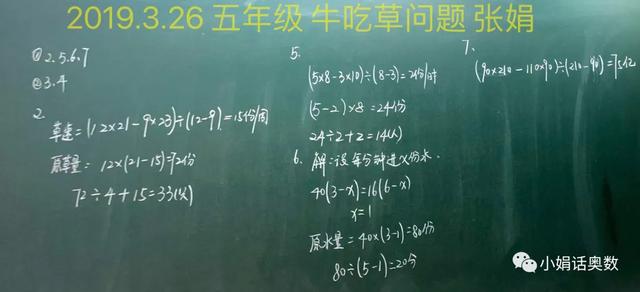 2019.3.26 五年级 牛吃草问题 张娟
①2.5.6.7
②3.4
2.
草速=(12×21-9×23)÷(12-9)=15份/周
原草量=12×(21-15)=72份
72÷4+15=33(头)
5.
(5×8-3×10)÷(8-3)=2份/时
(5-2)×8=24份
24÷2+2=14(人)
6. 解:设每分钟进x份水.
40(3-x)=16(6-x)
x=1
原水量=40×(3-1)=80份
80÷(5-1)=20分
7.
(90×210-110×90)÷(210-90)=75亿
小娟话奥数